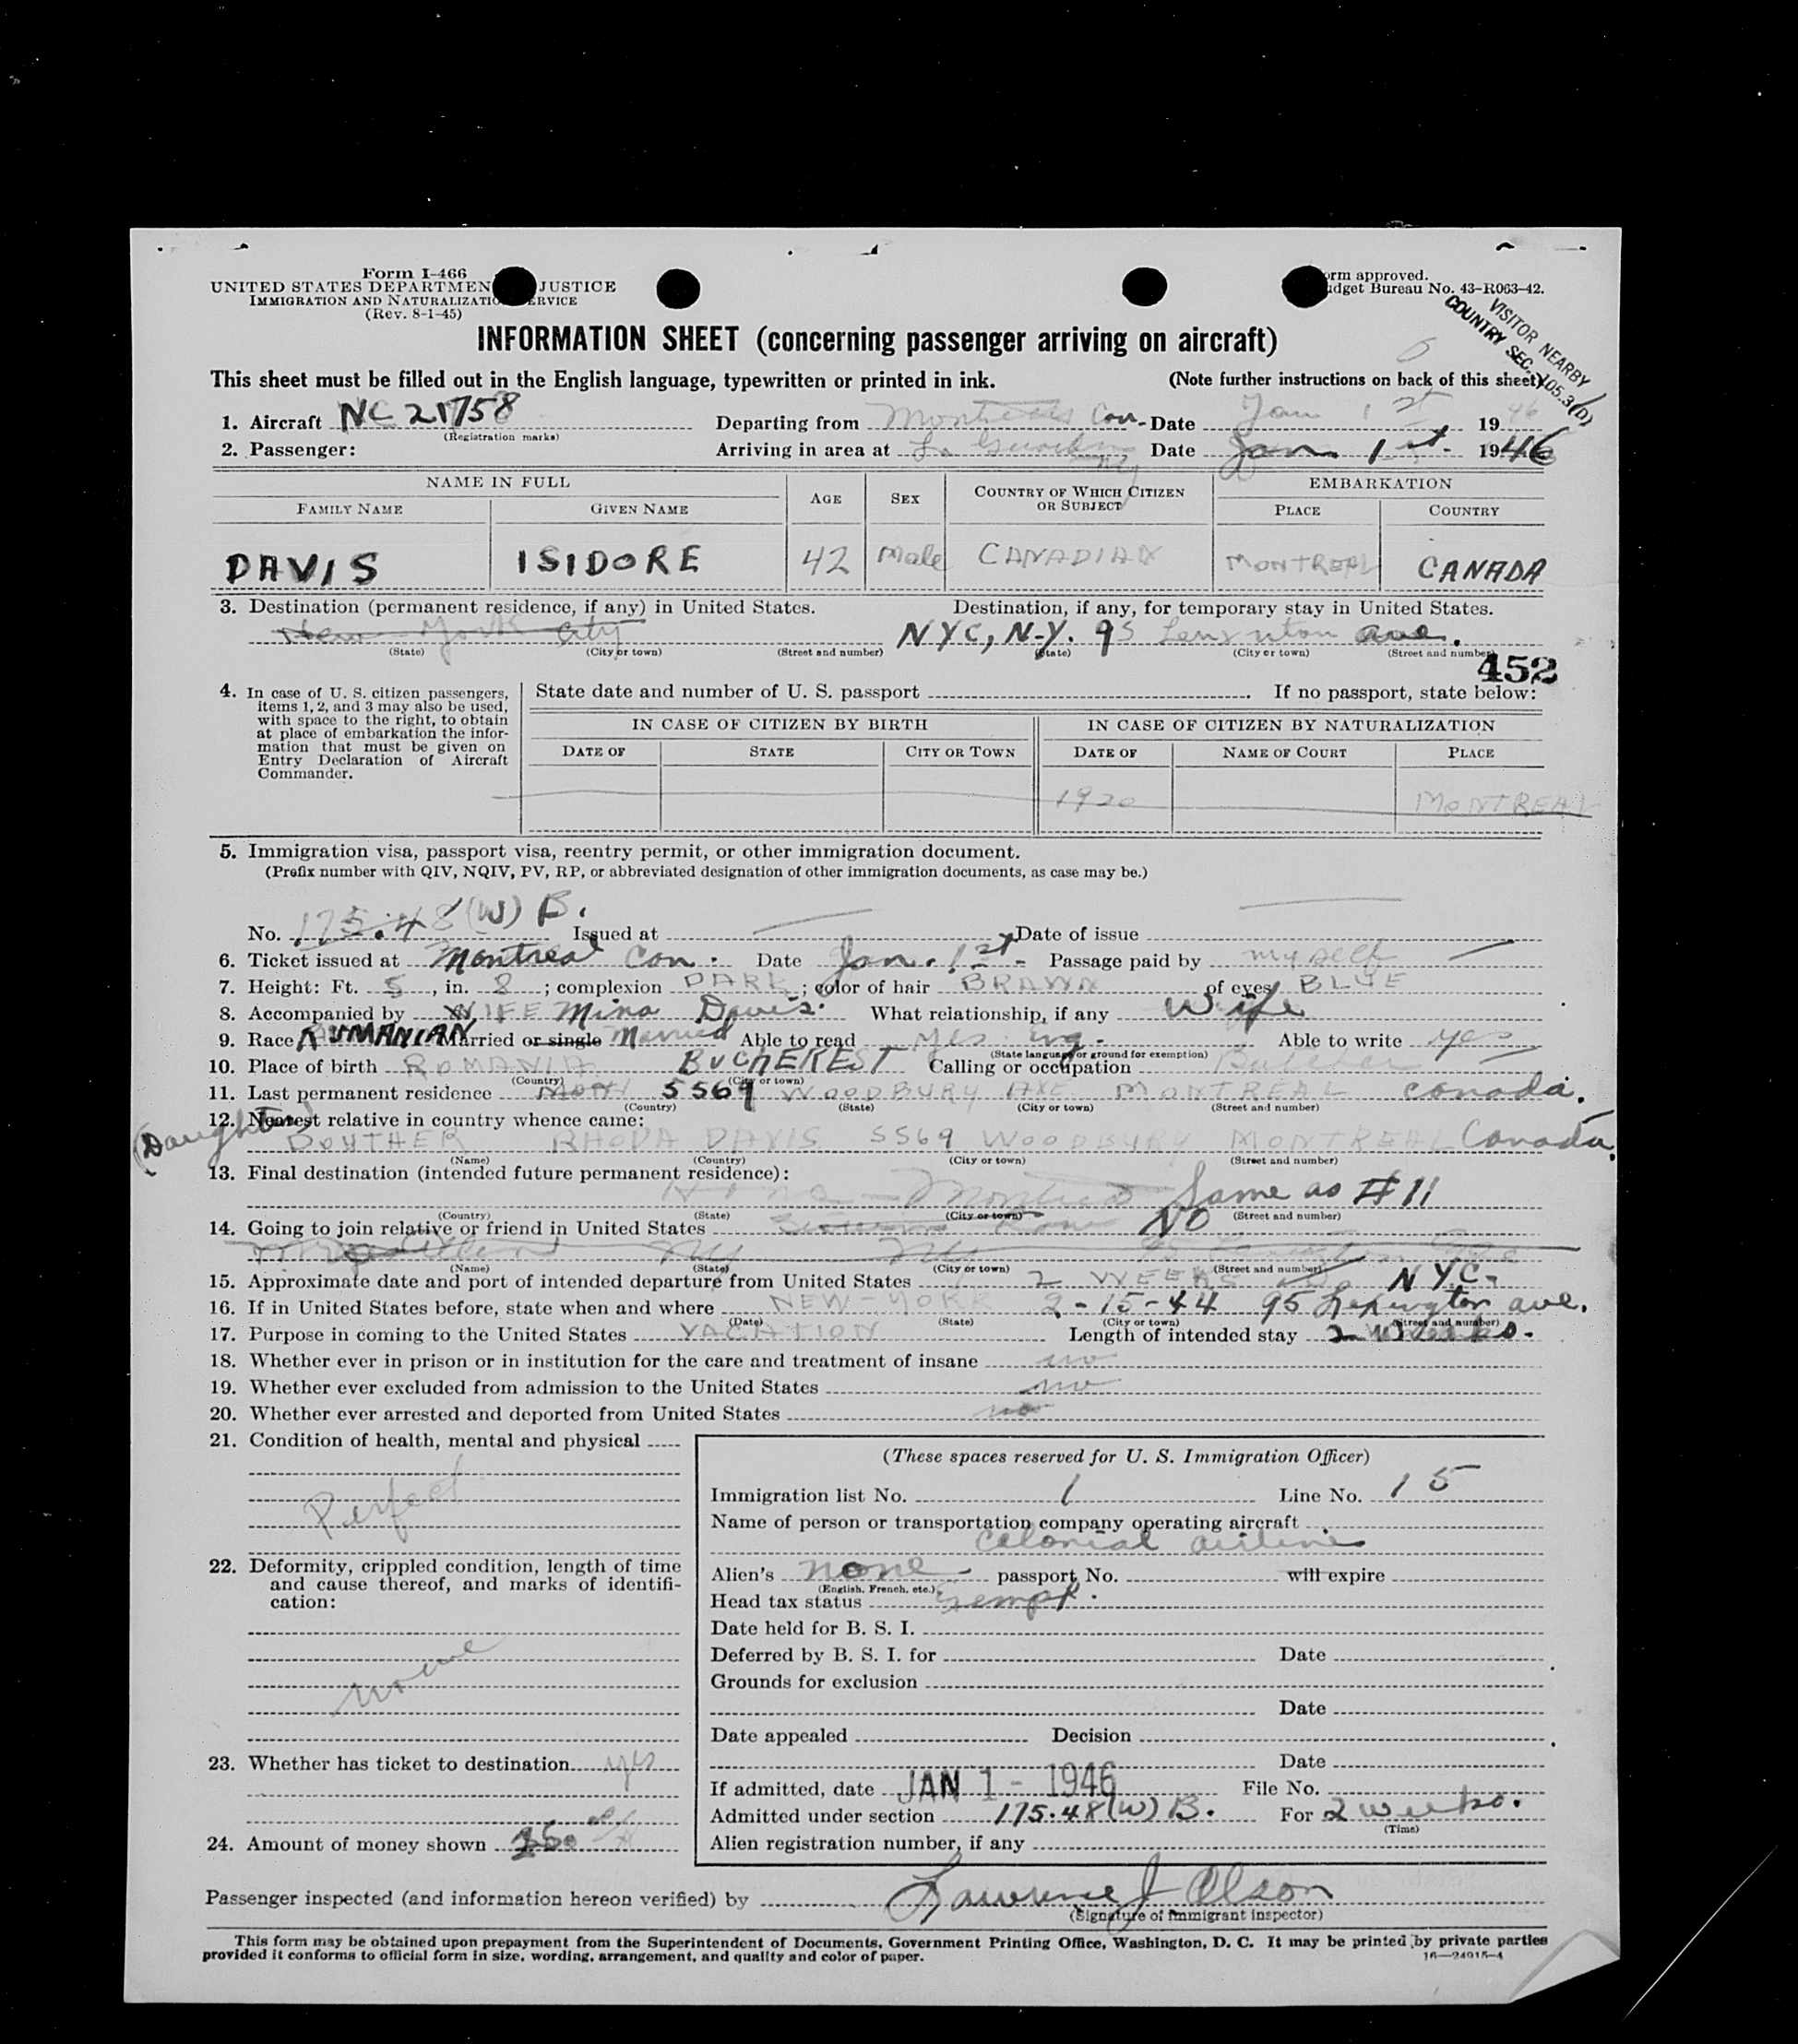 Form I-466
UNITED STATES DEPARTMEN JUSTICE
IMMIGRATION AND NATURALIZATIO ERVICE
(Rev. 8-1-45)
orm approved.
udget Bureau No. 43-R063-42.
VISITOR NEARBY
COUNTRY SEC. 105.3(D)
INFORMATION SHEET (concerning passenger arriving on aircraft)
This sheet must be filled out in the English language, typewritten or printed in ink. (Note further instructions on back of this sheet)
1. Aircraft NC 21758 Departing from Montreal Can- Date Jan 1 st 1946
(Registration marks)
2. Passenger: Arriving in area at Date Jan. 1 st. 1946
NAME IN FULL AGE SEX COUNTRY OF WHICH CITIZEN OR SUBJECT EMBARKATION
FAMILY NAME GIVEN NAME PLACE COUNTRY
DAVIS ISIDORE 42 Male CANADIAN MONTREAL CANADA
3. Destination (permanent residence, if any) in United States. Destination, if any, for temporary stay in United States.
New York City NYC, N.Y. 95 ave.
(State) (City or town) (Street and number) (State) (City or town) (Street and number)
452
4. In case of U. S. citizen passengers, items 1, 2, and 3 may also be used, with space to the right, to obtain at place of embarkation the information that must be given on Entry Declaration of Aircraft Commander.
State date and number of U. S. passport . If no passport, state below:
IN CASE OF CITIZEN BY BIRTH IN CASE OF CITIZEN BY NATURALIZATION
DATE OF STATE CITY OR TOWN DATE OF NAME OF COURT PLACE
1920 MONTREAL
5. Immigration visa, passport visa, reentry permit, or other immigration document.
(Prefix number with QIV, NQIV, PV, RP, or abbreviated designation of other immigration documents, as case may be.)
No. 175.48(W) B. Issued at Date of issue
6. Ticket issued at Montreal Can. Date Jan. 1st- Passage paid by myself
7. Height: Ft. 5, in. 8; complexion DARK; color of hair BRAWN of eyes BLUE
8. Accompanied by WIFE Mina Davis. What relationship, if any Wife
9. Race RUMANIAN Married or single Married Able to read yes Eng. Able to write yes
(State language or ground for exemption)
10. Place of birth ROMANIA BUCHEREST Calling or occupation Butcher
(Country) (City or town)
11. Last permanent residence 5569 WOODBURY AVE MONTREAL Canada.
(Country) (State) (City or town) (Street and number)
12. Nearest relative in country whence came:
(Daughter) DOUTHER RHODA DAVIS 5569 WOODBURY MONTREAL Canada.
(Name) (Country) (City or town) (Street and number)
13. Final destination (intended future permanent residence):
Montreal Same as #11
(Country) (State) (City or town) (Street and number)
14. Going to join relative or friend in United States NO
(Name) (State) (City or town) (Street and number)
15. Approximate date and port of intended departure from United States 2 WEEKS NYC-
16. If in United States before, state when and where NEW-YORK 2-15-44 95 Lexington ave.
(Date) (State) (City or town) (Street and number)
17. Purpose in coming to the United States VACATION Length of intended stay 2 weeks.
18. Whether ever in prison or in institution for the care and treatment of insane no
19. Whether ever excluded from admission to the United States no
20. Whether ever arrested and deported from United States no
21. Condition of health, mental and physical
Perfect
22. Deformity, crippled condition, length of time and cause thereof, and marks of identification:
none
23. Whether has ticket to destination yes
24. Amount of money shown
(These spaces reserved for U. S. Immigration Officer)
Immigration list No. 1 Line No. 15
Name of person or transportation company operating aircraft
Colonial airlines
Alien's none passport No. will expire
(English, French, etc.)
Head tax status Exempt.
Date held for B. S. I.
Deferred by B. S. I. for Date
Grounds for exclusion
Date
Date appealed Decision
Date
If admitted, date JAN 1 - 1946 File No.
Admitted under section 175.48(W) B. For 2 weeks.
(Time)
Alien registration number, if any
Passenger inspected (and information hereon verified) by Lawrence J Olson
(Signature of immigrant inspector)
This form may be obtained upon prepayment from the Superintendent of Documents, Government Printing Office, Washington, D. C. It may be printed by private parties
provided it conforms to official form in size, wording, arrangement, and quality and color of paper. 16—24915-4